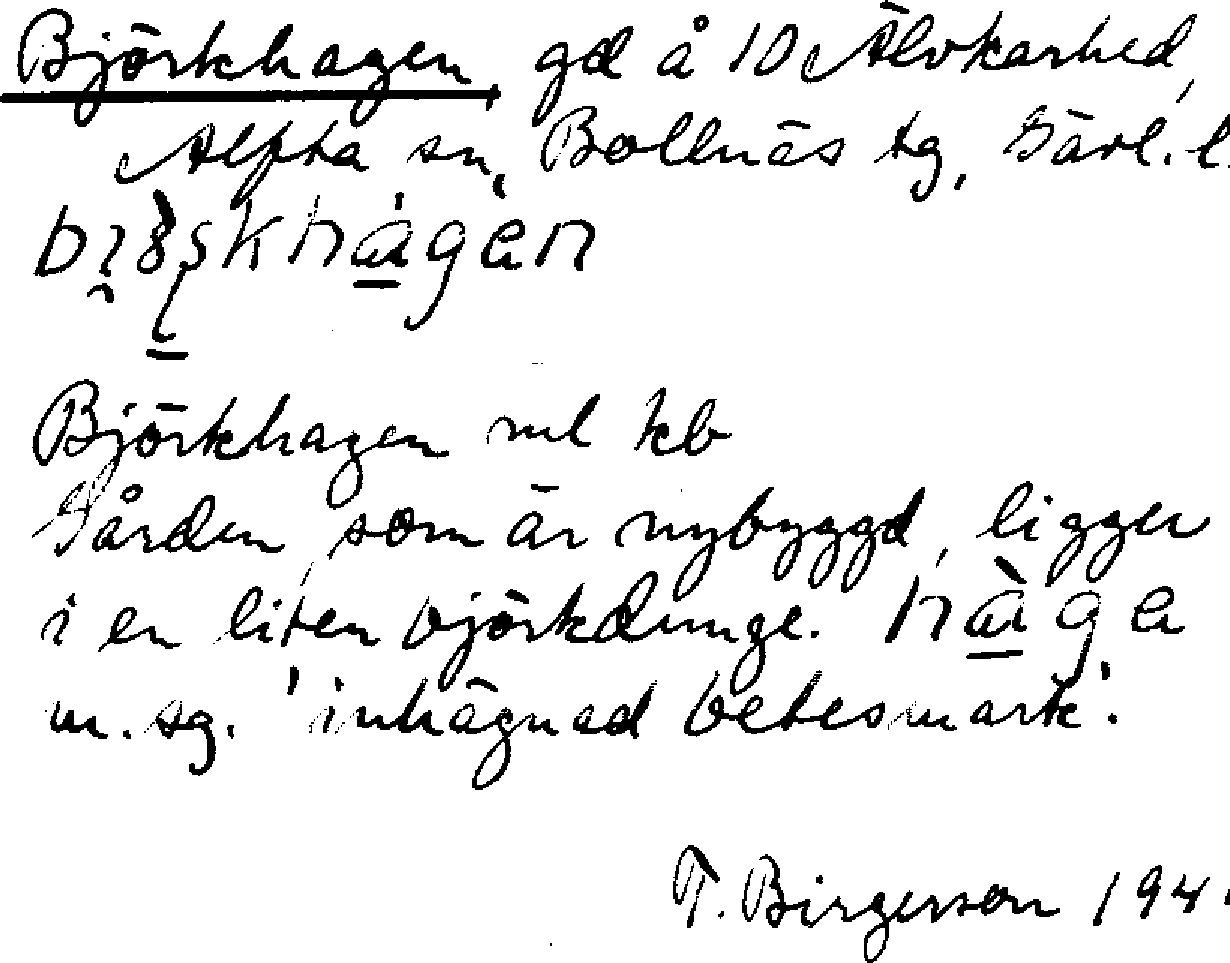 Björkhagen, gd å 10 Älvkarhed,
Alfta sn, Bollnäs tg, Gävl. l.
Björkhagen ml kb
Gården, som är nybyggd, ligger
i en liten björkdunge. hàge
m. sg. 'inhägnad betesmark'.
T. Birgerson 194